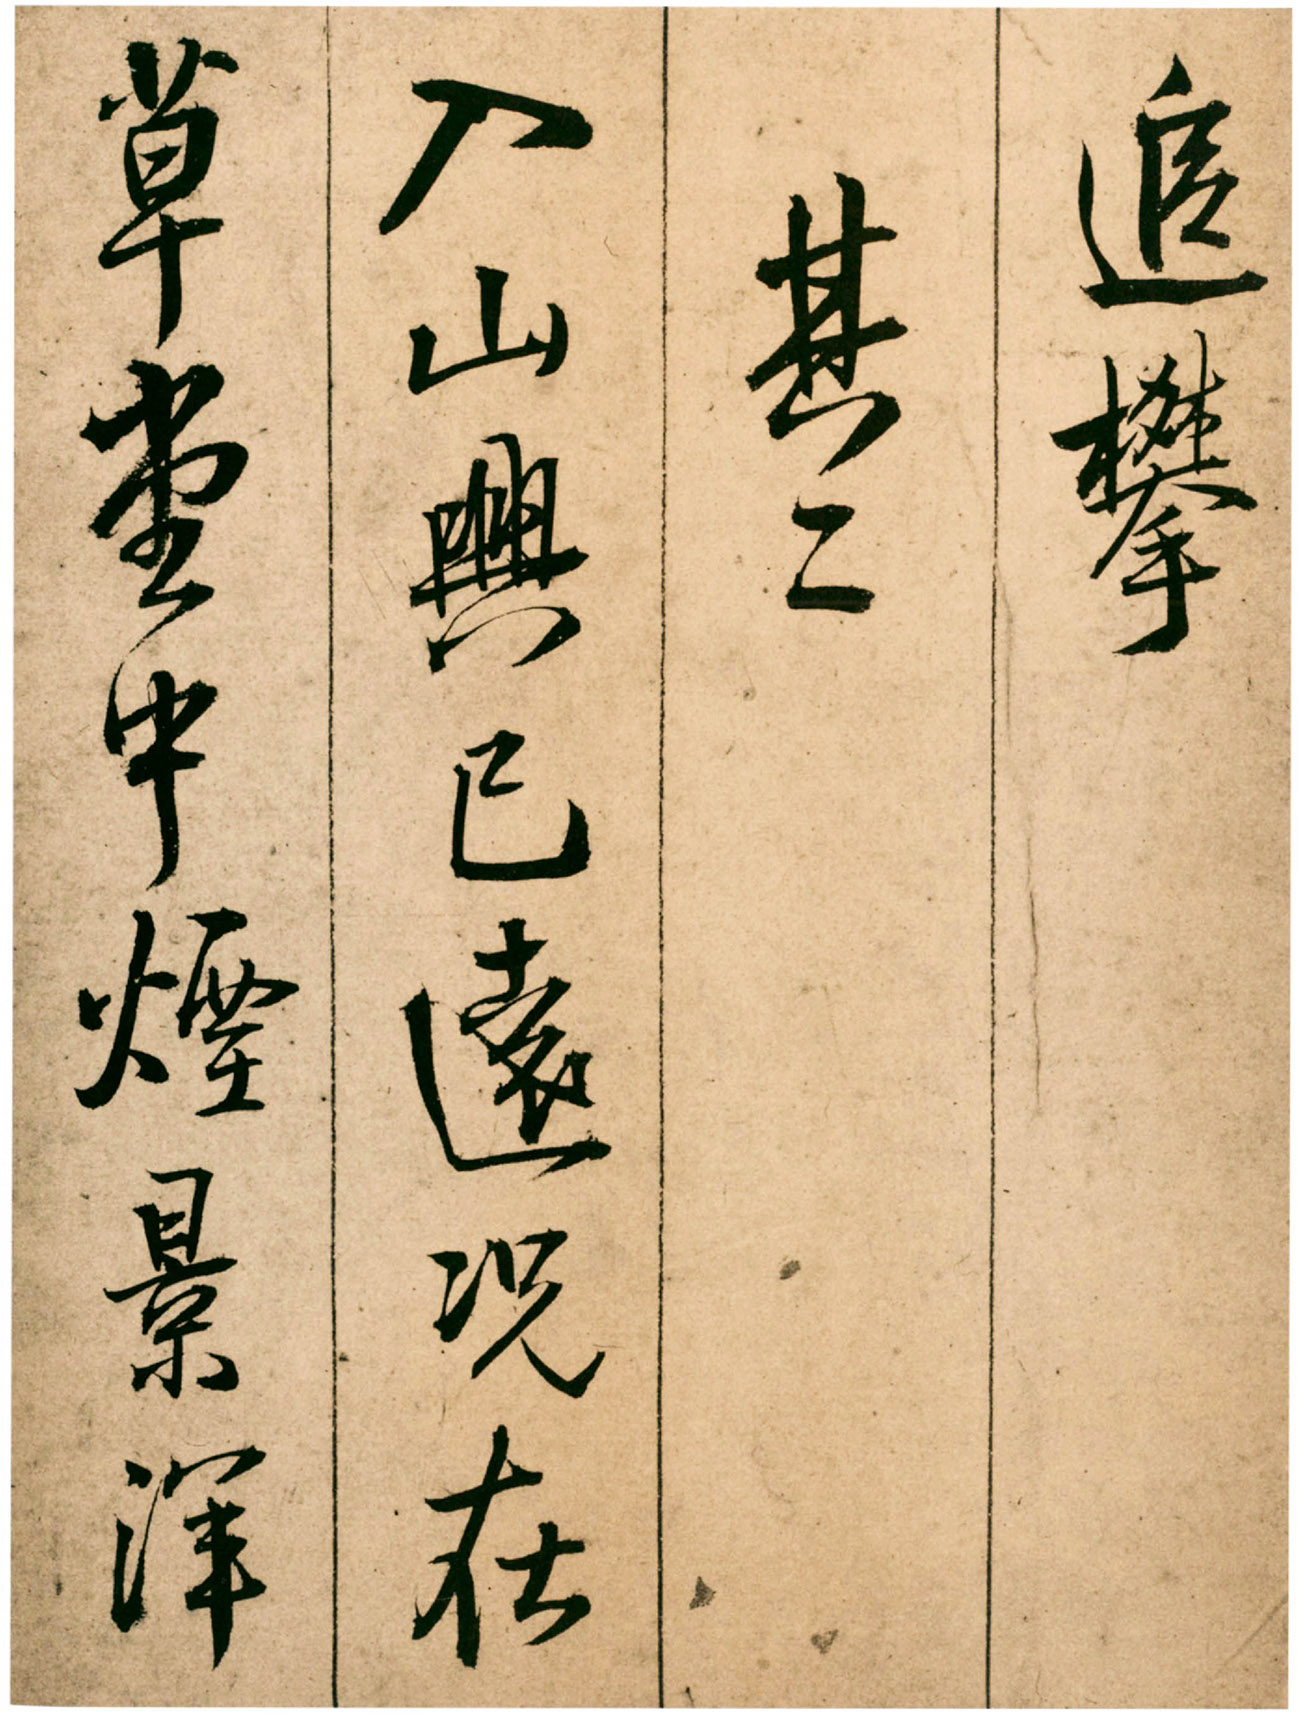 追攀
其二
入山興已遠況在
草堂中煙景渾